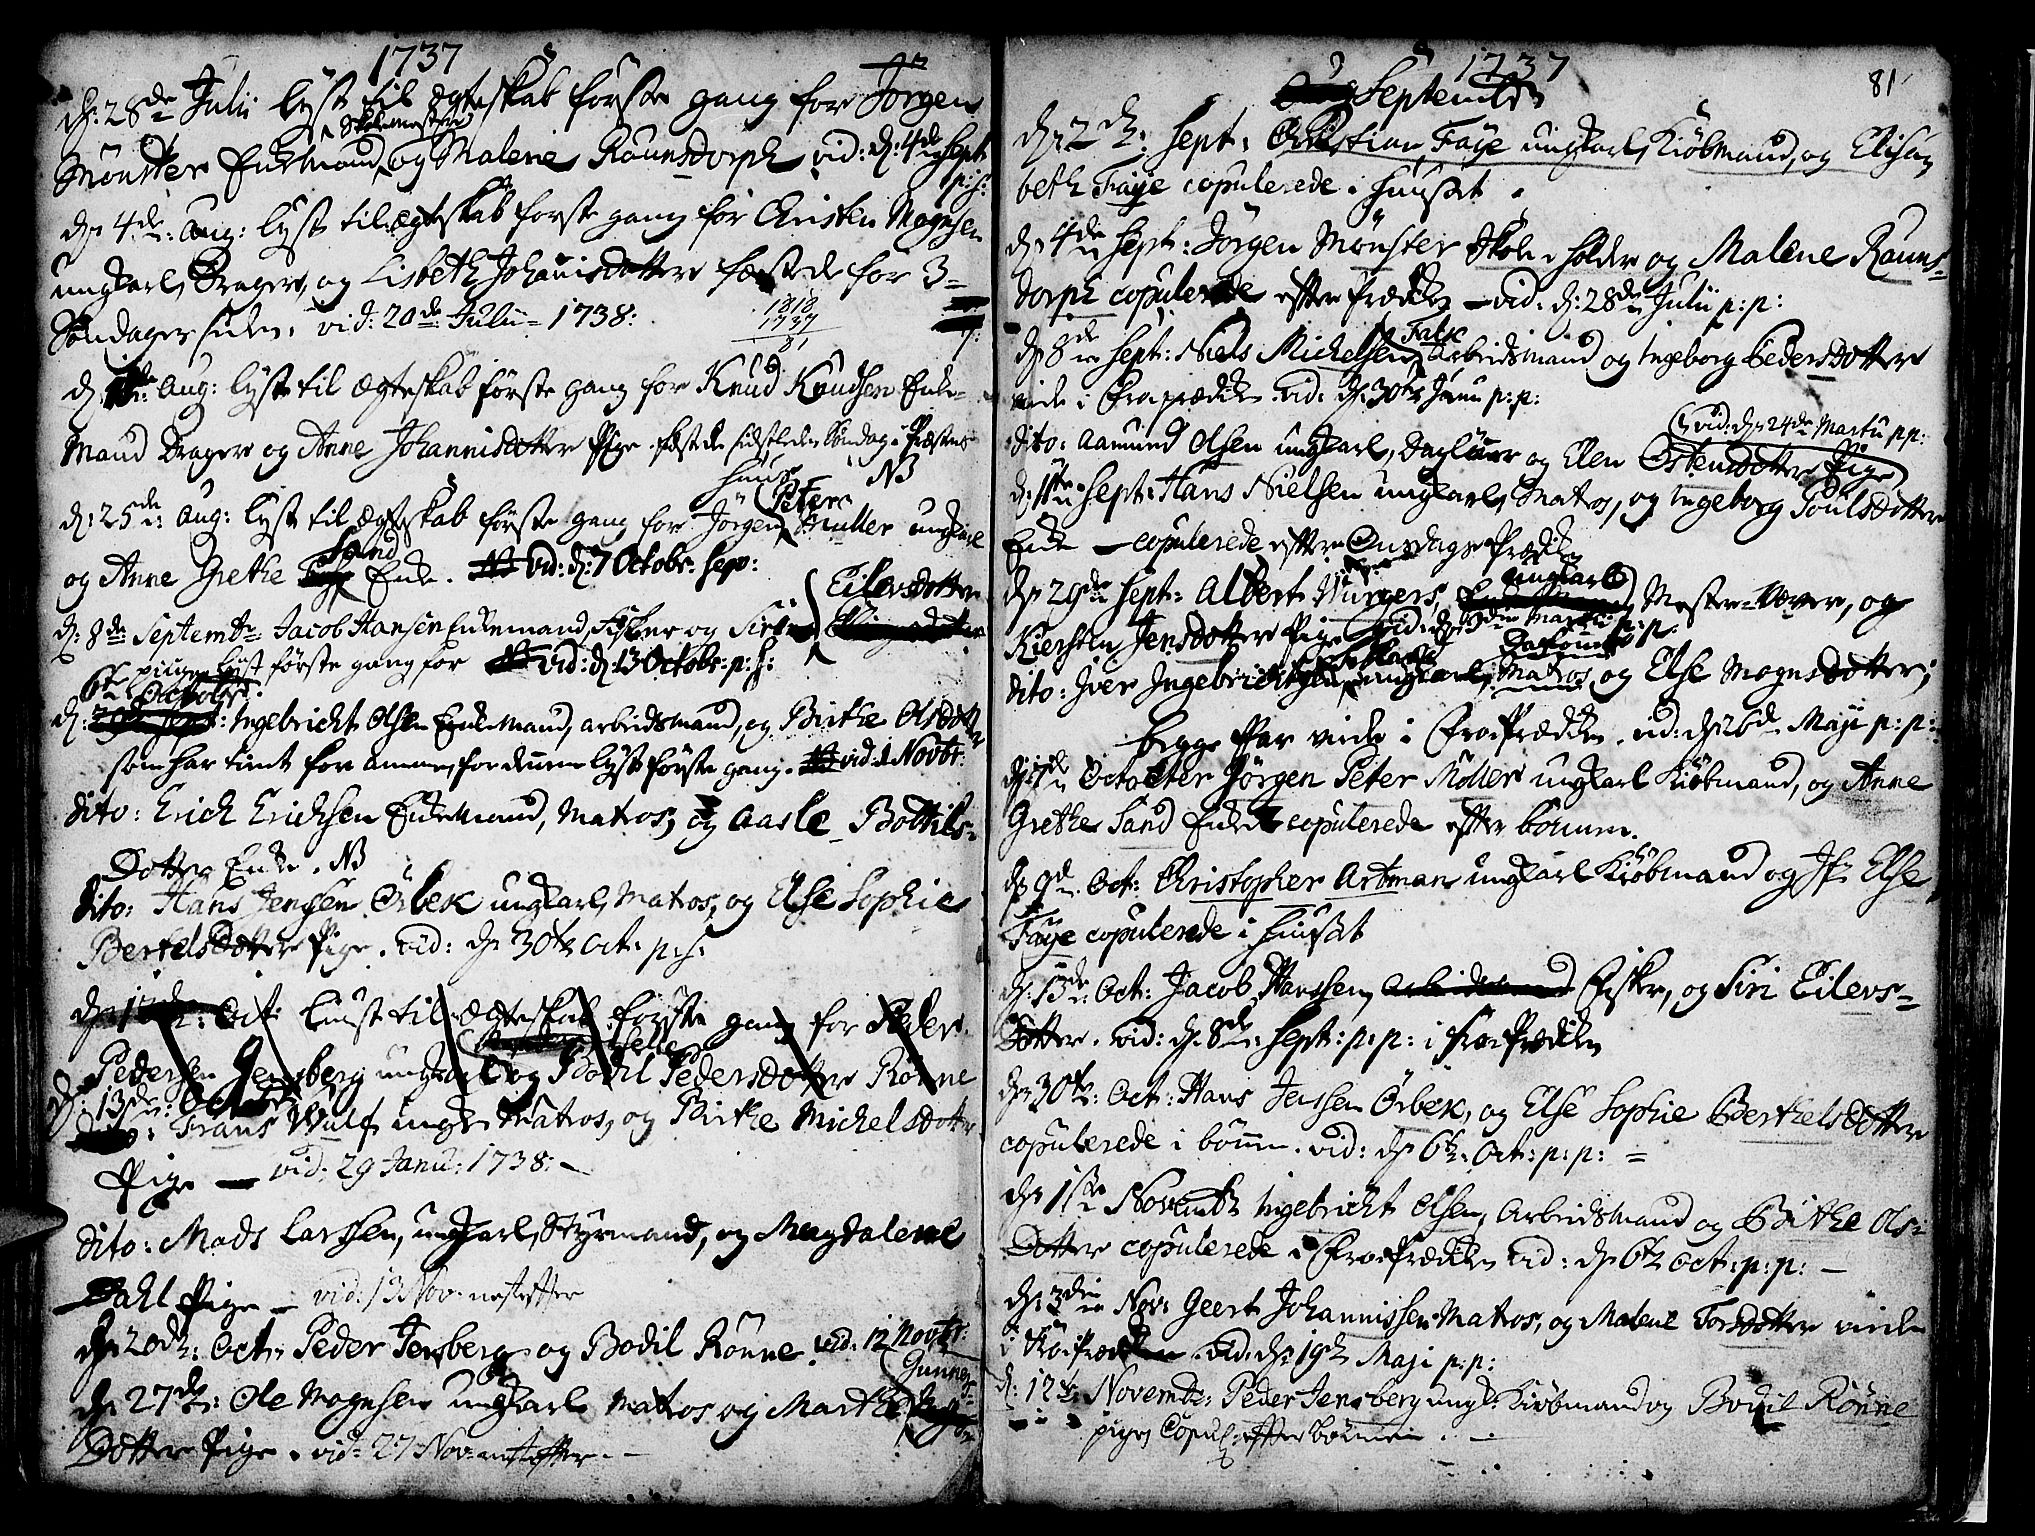 1737
d: 28de Julii lyst til ægteskab første gang for Jörgen
Skolemester
Mönster Enkemand, og Malene Raunsdorph vid: d: 4de Sept
p: s:
d: 4de: Aug: lyst til ægteskab første gang for Christen Mognsen
ungkarl, Drager, og Lisbeth Johannisdotter fæstede for 3
Søndager siden. vid: 20de Julii 1738:
1818
1737
81
d: Aug: lyst til ægteskab første gang for Knud Knudsen Enke-
mand Drager og Anne Johannisdotter Pige fæstede sidstleden Søndag i Præstens
huus NB
d: 25de: Aug: lyst til ægteskab første gang for Jörgen Peter Müller ungkarl
Sand
og Anne Grethe Enke. vid: d: 7 Octobr. seqv:
Eilersdotter
d: 8de Septembr Jacob Hansen Enkemand, Fisker og Siri
pige lyst første gang for vid: d: 13 Octobr: p: s:
6te Octobr.
d: Ingebricht Olsen Enkemand, arbeidsmand, og Birthe Olsdotter
som har tient for amme, for dennem lyst første gang. vid: d. Novbr.
dito: Erich Erichsen Enkemand, Matros, og Aasle Bottils-
Dotter Enke. NB
dito: Hans Jenssen Örbek ungkarl, Matros, og Else Sophie
BertelsDotter Pige. vid: d: 30te Oct: p: s:
d: Oct: lyst til ægteskab første gang for Peder
Pedersen Jensberg ungkarl og Bodil Pedersdotter Rönne
d: 13de: Oct
Frans Wulf ungk: Matros, og Birthe Michelsdotter
Pige — vid: 29 Janu: 1738. —
dito: Mads Larssen, ungkarl, Styrmand, og Magdalene
Dahl Pige — vid: 13 Nov. nestefter
d: 20de: Oct: Peder Jensberg og Bodil Rönne. vid: 12 Novbr:
Gunners-
d: 27de: Ole Mognsen ungkarl Matros og Marthe
Dotter Pige. vid: 27 Nov: nestefter. —
1737
81
September
d: 2de: Sept: Christian Faye ungkarl, Kiöbmand, og Elisa-
beth Faye copulerede i huuset.
d: 4de Sept: Jörgen Mönster Skoleholder og Malene Rauns-
dorph copulerede efter Prædiken — vid. d: 28de Julii p: p:
Falk
d: 8de Sept: Niels Michelsen Arbeidsmand og Ingeborg Pedersdotter
viede i Froeprædiken. vid. d: 30te Janu p: p:
vid: d: 24de Martii p: p:
dito: Aamund Olsen ungkarl, Dagluer og Elen Ostensdotter Pige
d: 11te Sept: Hans Nielsen ungkarl, Matros, og Ingeborg Poulsdotter
Enke — copulerede efter Onsdags Prædiken
ungkarl
d: 29de Sept: Albert Würgers, Mester-Væver, og
Kiersten Jensdotter Pige vid: d: Martii p: p:
dito: Iver Ingebrichtsen ungkarl, Matros og Else Mognsdotter;
begge Par viede i FroePrædiken. vid: d: 26de Maji p: p:
d: 7de October Jörgen Peter Möller ungkarl Kiöbmand, og Anne
Grethe Sand Enke copulerede efter bönnen.
d: 9de Oct: Christopher Artman ungkarl Kiöbmand og Jfr Else
Faye copulerede i huuset
d: 13de: Oct: Jacob Hanssen, Fisker, og Siri Eilers-
Dotter. vid: d: 8de: Sept: p: p: i FroePrædiken
d: 30te: Oct: Hans Jenssen Örbek, og Else Sophie BerthelsDotter
copulerede i bönnen. vid: d: 6te: Oct: p: p: —
d: 1ste Novembr Ingebricht Olsen, Arbeidsmand og Birthe Ols-
Dotter copulerede i FroePrædiken vid: d: 6te Oct: p: p: —
d: 3de Nov: Geert Johannissen Matros, og Malene Torsdotter viede
i FroePrædiken. vid: d: 19de Maji p: p:
d: 12te Novembr: Peder Jensberg ungk: Kiöbmand og Bodil Rönne
pige, Copul: efter bönnen. —